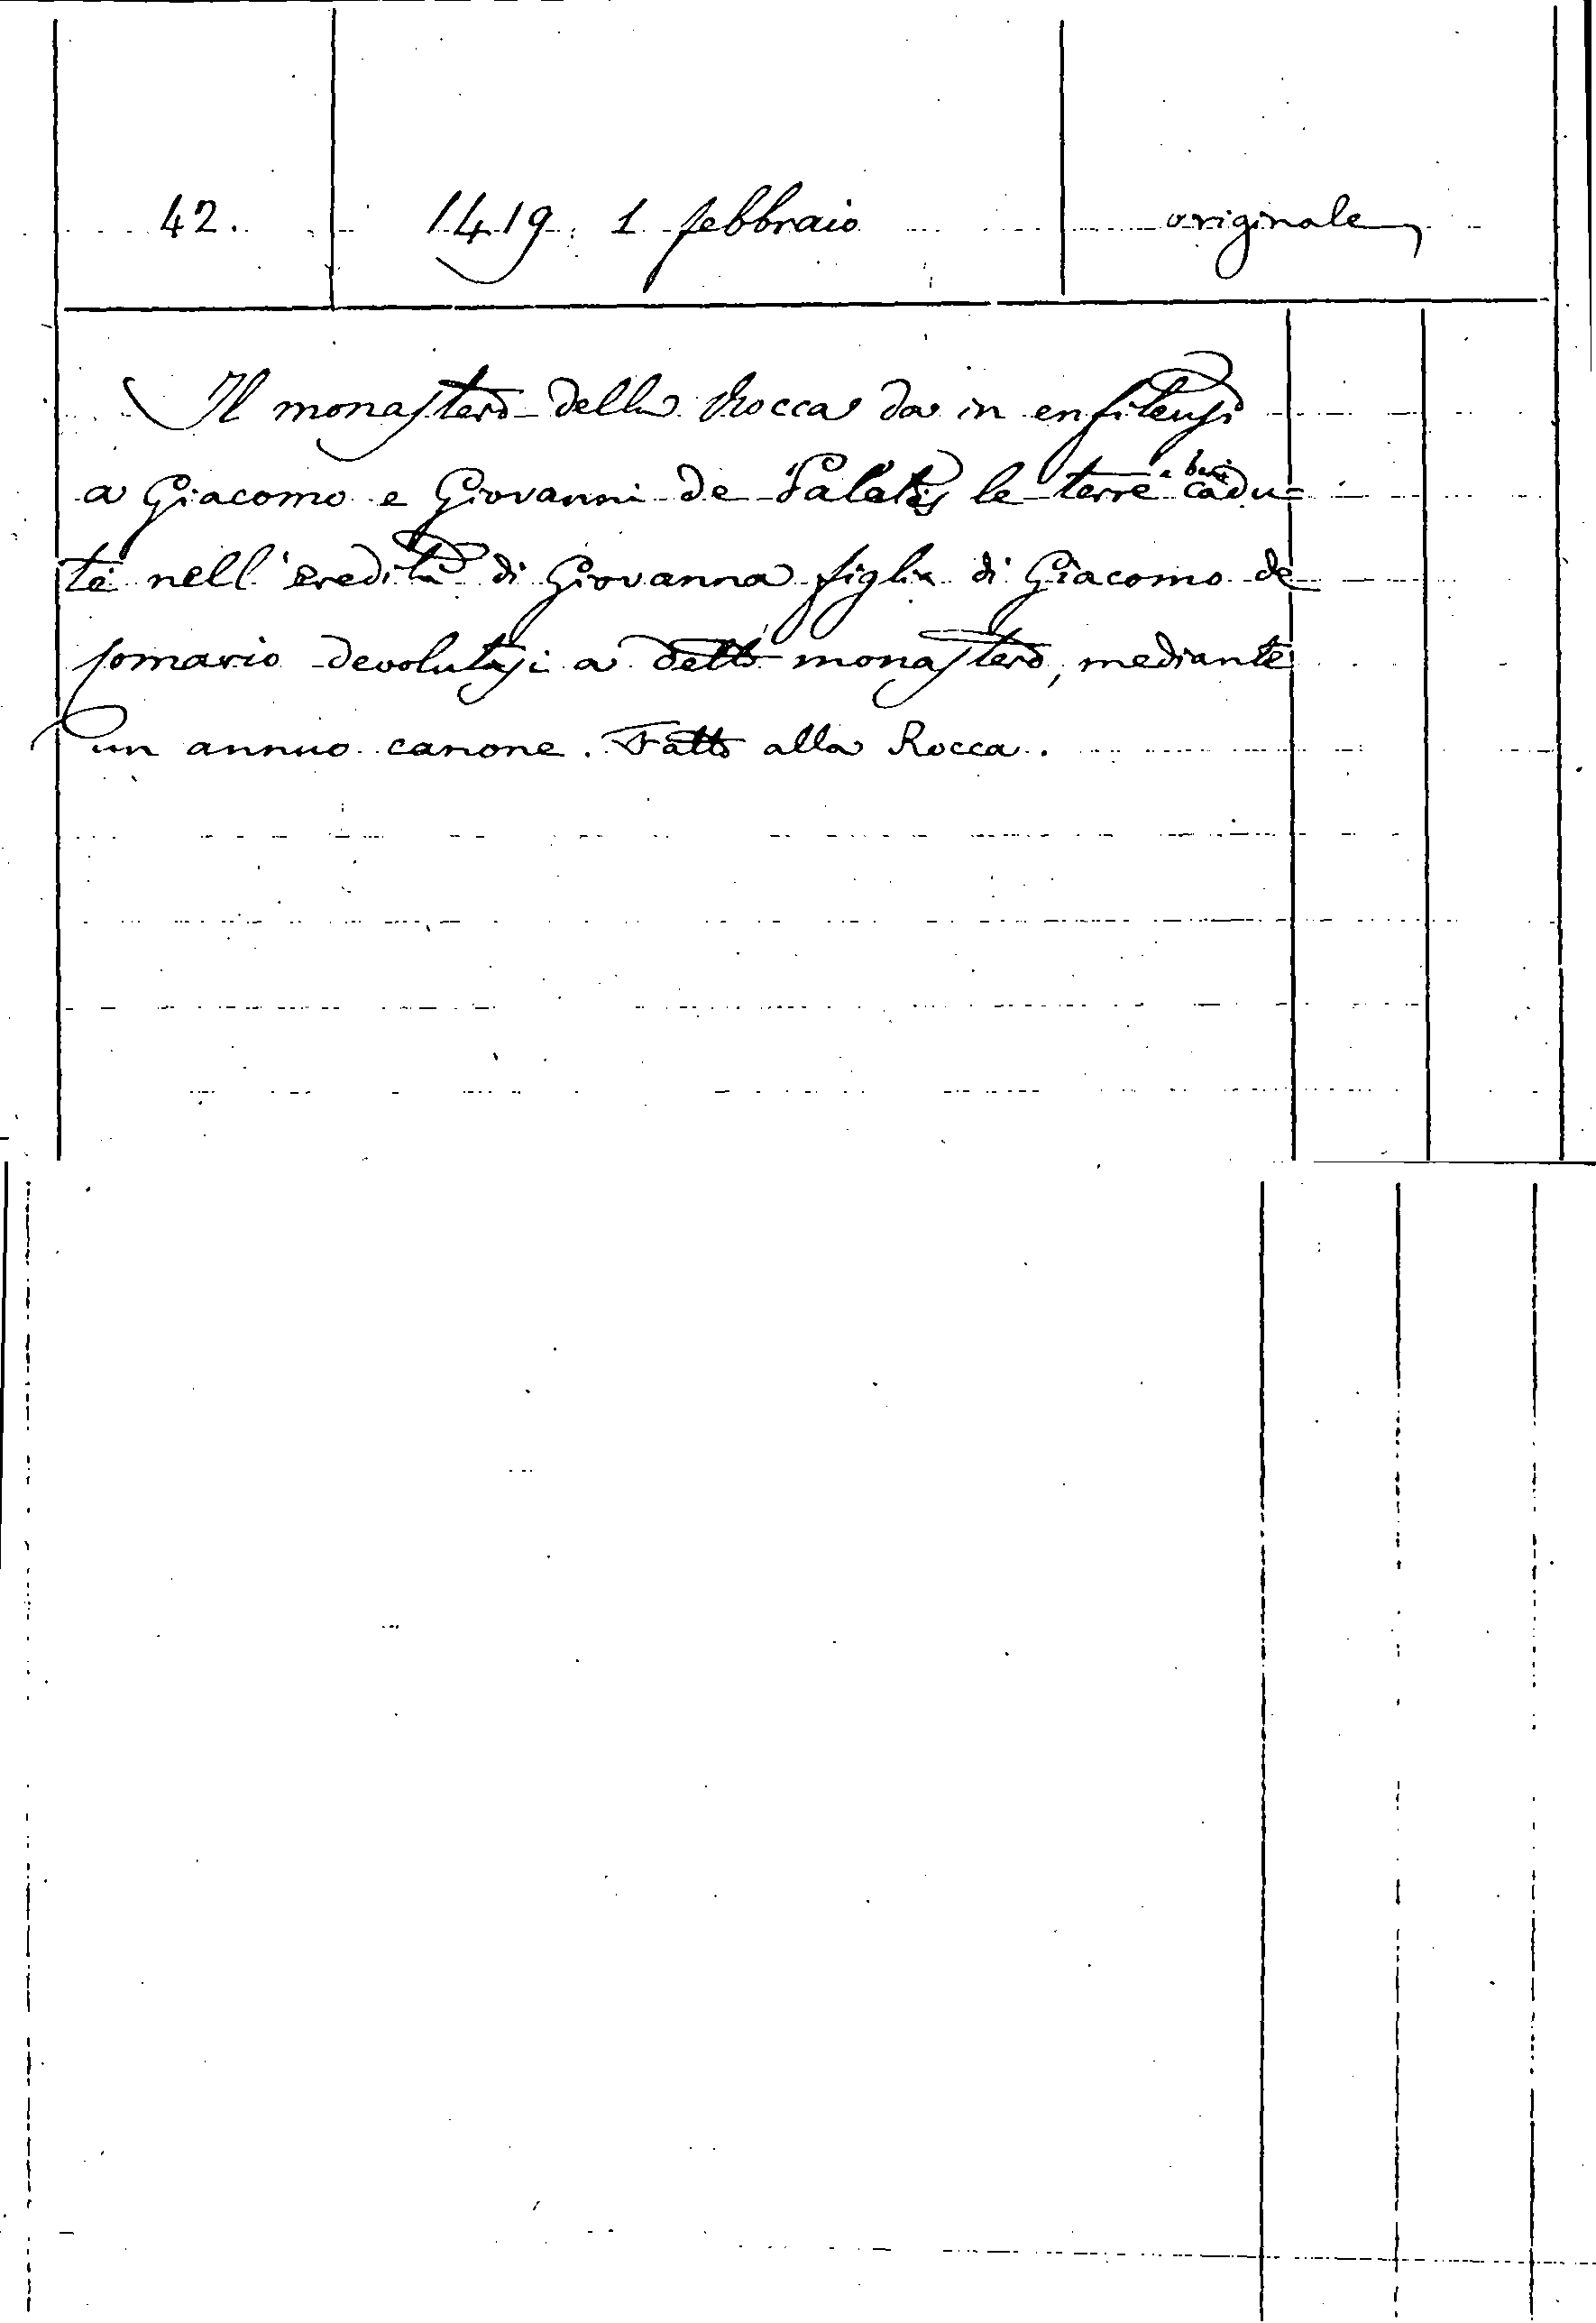 42.
1419. 1 febbraio
originale
Il monastero della Rocca da in enfiteusi
a Giacomo e Giovanni de le terre e beni cadu=
te nell'eredità di Giovanna figlia di Giacomo de
pomario devolutasi a detto monastero, mediante
un annuo canone. Fatto alla Rocca.